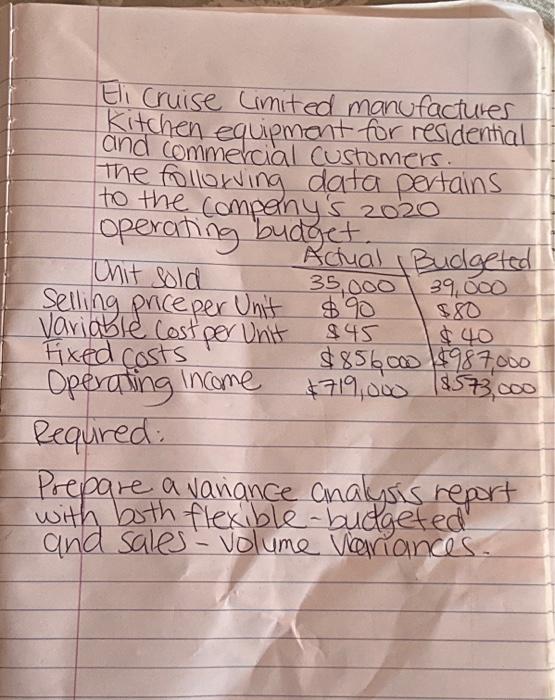 Eli Cruise Limited manufactures
Kitchen equipment for residential
and commercial customers.
The following data pertains
to the company's 2020
operating budget.
Actual Budgeted
Unit Sold 35,000 39,000
Selling price per Unit $90 $80
Variable Cost per Unit $45 $40
Fixed costs $856,000 $987,000
Operating Income $719,000 $573,000
Requred:
Prepare a variance analysis report
with both flexible-budgeted
and sales-volume variances.